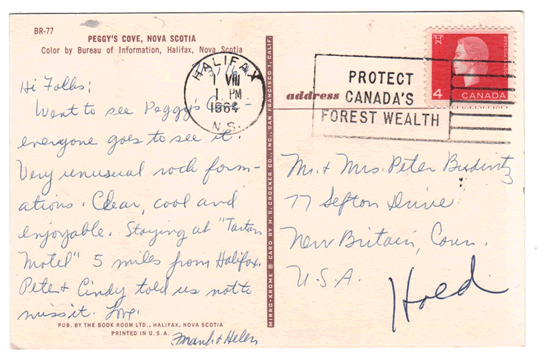 BR-77
PEGGY'S COVE, NOVA SCOTIA
Color by Bureau of Information, Halifax, Nova Scotia
Hi Folks:
Went to see Peggy's Cove -
everyone goes to see it.
Very unusual rock form-
ations. Clear, cool and
enjoyable. Staying at "Tartan
Motel" 5 miles from Halifax.
Peter & Cindy told us not to
miss it. Love,
Frank & Helen
PUB. BY THE BOOK ROOM LTD., HALIFAX, NOVA SCOTIA
PRINTED IN U.S.A.
MIRRO-KROME ® CARD BY H. S. CROCKER CO., INC., SAN FRANCISCO 1, CALIF.
HALIFAX
VIII
1 PM
1964
N.S.
PROTECT
CANADA'S
FOREST WEALTH
4 CANADA
address
Mr. & Mrs. Peter
77 Sefton Drive
New Britain, Conn.
U.S.A.
Hold